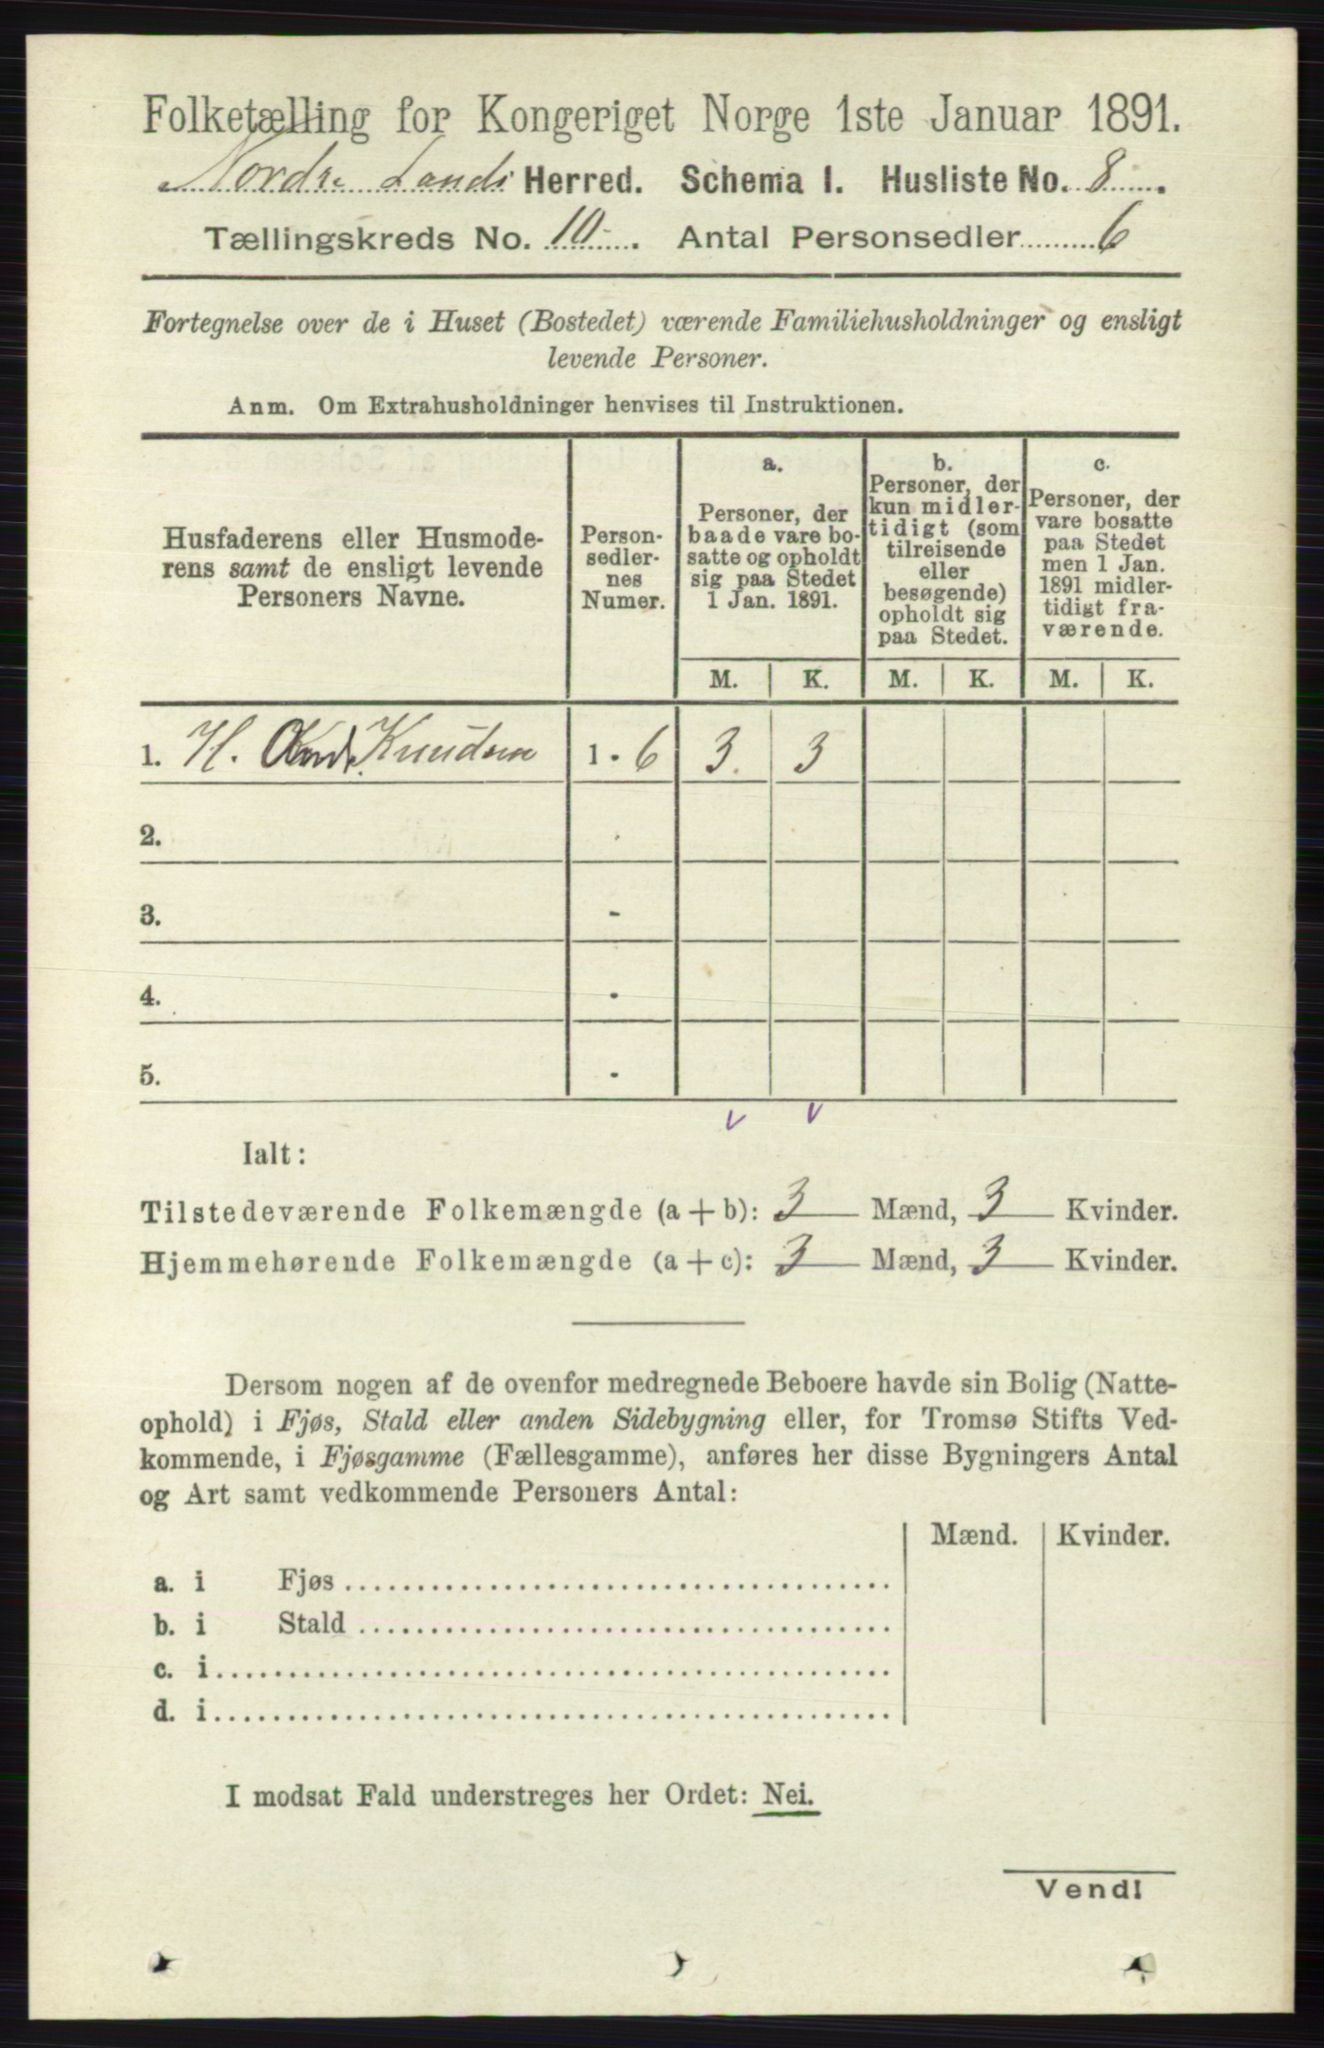 Folketælling for Kongeriget Norge 1ste Januar 1891.
Nordre Lands Herred. Schema I. Husliste No. 8.
Tællingskreds No. 10. Antal Personsedler 6
Fortegnelse over de i Huset (Bostedet) værende Familiehusholdninger og ensligt
levende Personer.
Anm. Om Extrahusholdninger henvises til Instruktionen.
Husfaderens eller Husmode-
rens samt de ensligt levende
Personers Navne.
Person-
sedler-
nes
Numer.
a.
Personer, der
baade vare bo-
satte og opholdt
sig paa Stedet
1 Jan. 1891.
b.
Personer, der
kun midler-
tidigt (som
tilreisende
eller
besøgende)
opholdt sig
paa Stedet.
c.
Personer, der
vare bosatte
paa Stedet
men 1 Jan.
1891 midler-
tidigt fra-
værende.
M. K. M. K. M. K.
1. H. Knudsen 1 - 6 3 3
2.
3. -
4. -
5. -
Ialt:
Tilstedeværende Folkemængde (a + b): 3 Mænd, 3 Kvinder.
Hjemmehørende Folkemængde (a + c): 3 Mænd, 3 Kvinder.
Dersom nogen af de ovenfor medregnede Beboere havde sin Bolig (Natte-
ophold) i Fjøs, Stald eller anden Sidebygning eller, for Tromsø Stifts Ved-
kommende, i Fjøsgamme (Fællesgamme), anføres her disse Bygningers Antal
og Art samt vedkommende Personers Antal:
Mænd. Kvinder.
a. i Fjøs
b. i Stald
c. i
d. i
I modsat Fald understreges her Ordet: Nei.
Vend!